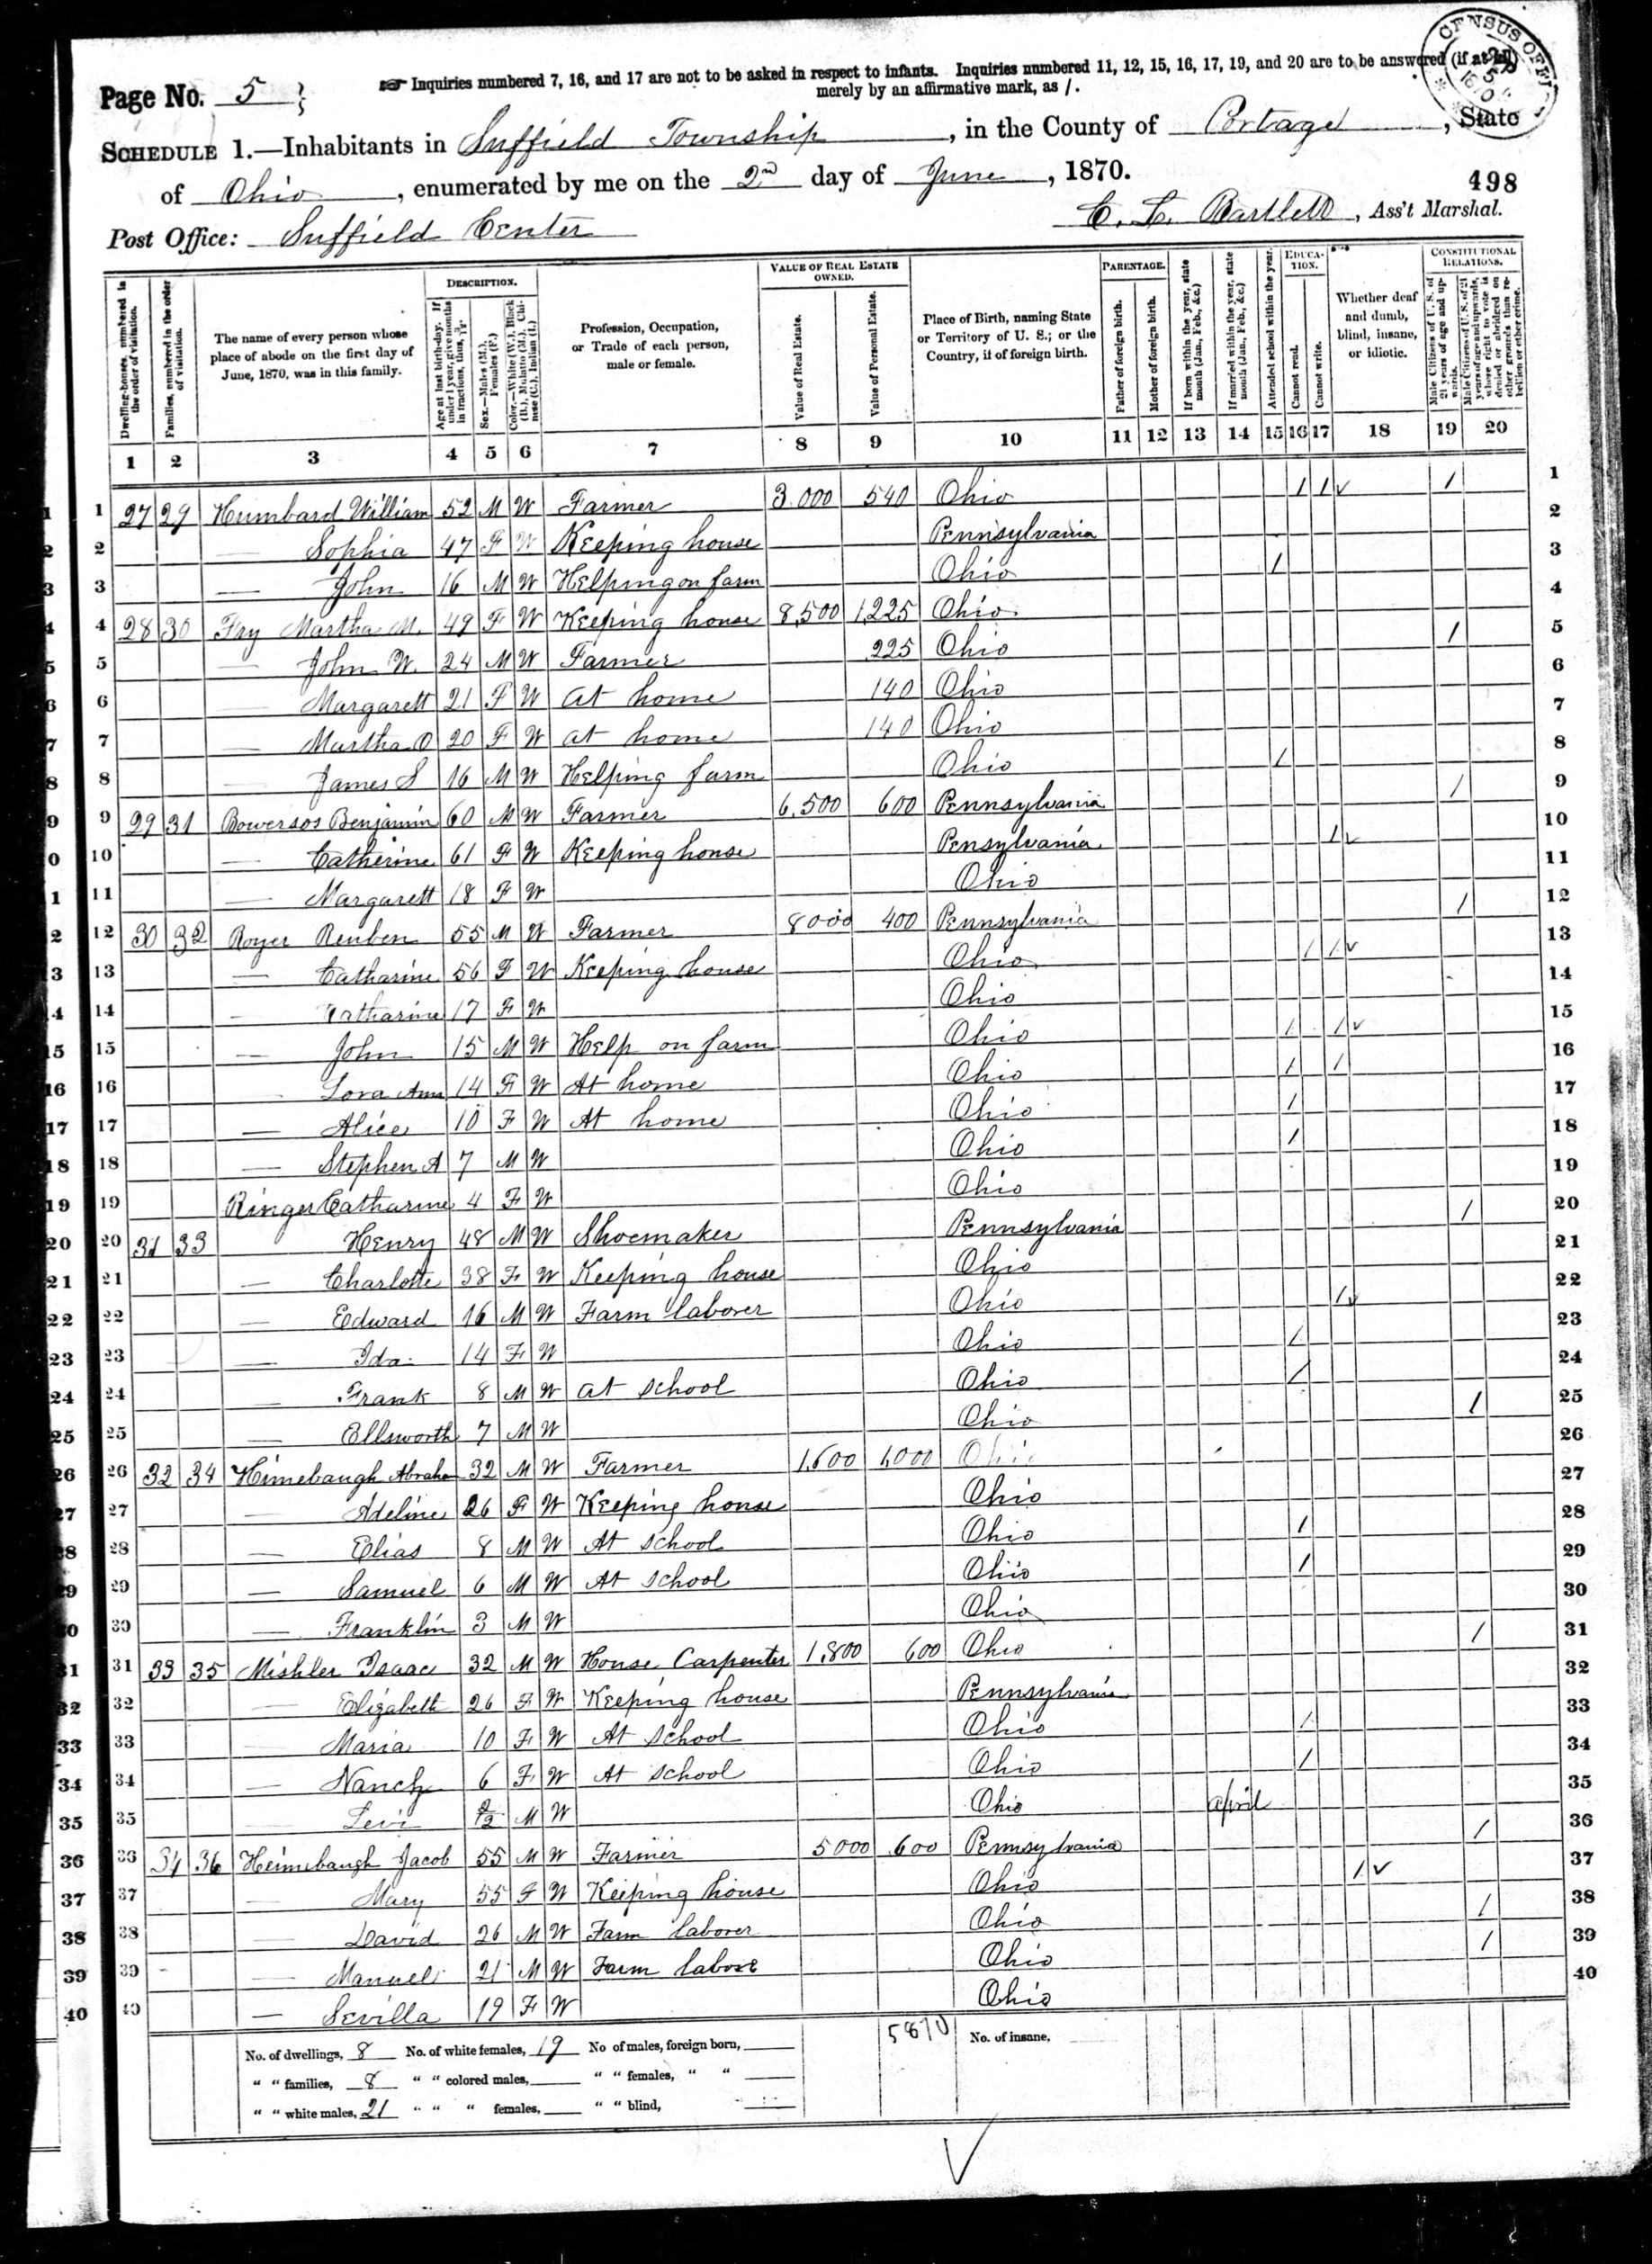 Page No. 5
Inquiries numbered 7, 16, and 17 are not to be asked in respect to infants. Inquiries numbered 11, 12, 15, 16, 17, 19, and 20 are to be answered (if at all)
merely by an affirmative mark, as /.
CENSUS OFFI
SCHEDULE 1.—Inhabitants in Suffield Township, in the County of Portage, State
of Ohio, enumerated by me on the 2nd day of June, 1870.
498
Post Office: Suffield Center
C. L. Bartlett, Ass't Marshal.
DESCRIPTION. VALUE OF REAL ESTATE OWNED. PARENTAGE. EDUCATION. CONSTITUTIONAL RELATIONS.
Dwelling-houses, numbered in the order of visitation.
Families, numbered in the order of visitation.
The name of every person whose place of abode on the first day of June, 1870, was in this family.
Age at last birth-day. If under 1 year, give months in fractions, thus, 3/12.
Sex.—Males (M.), Females (F.)
Color.—White (W.), Black (B.), Mulatto (M.), Chinese (C.), Indian (I.)
Profession, Occupation, or Trade of each person, male or female.
Value of Real Estate.
Value of Personal Estate.
Place of Birth, naming State or Territory of U. S.; or the Country, if of foreign birth.
Father of foreign birth.
Mother of foreign birth.
If born within the year, state month (Jan., Feb., &c.)
If married within the year, state month (Jan., Feb., &c.)
Attended school within the year.
Cannot read.
Cannot write.
Whether deaf and dumb, blind, insane, or idiotic.
Male Citizens of U. S. of 21 years of age and upwards.
Male Citizens of U. S. of 21 years of age and upwards, whose right to vote is denied or abridged on other grounds than rebellion or other crime.
1 2 3 4 5 6 7 8 9 10 11 12 13 14 15 16 17 18 19 20
1 27 29 Humbard William 52 M W Farmer 3.000 540 Ohio / / √ / 1
2 — Sophia 47 F W Keeping house Pennsylvania 2
3 — John 16 M W Helping on farm Ohio / 3
4 28 30 Fry Martha M. 49 F W Keeping house 8,500 1,225 Ohio 4
5 — John W. 24 M W Farmer 225 Ohio / 5
6 — Margarett 21 F W at home 140 Ohio 6
7 — Martha O 20 F W at home 140 Ohio 7
8 — James S 16 M W Helping farm Ohio / 8
9 29 31 Bowersos Benjamin 60 M W Farmer 6,500 600 Pennsylvania / 9
10 — Catherine 61 F W Keeping house Pensylvania / √ 10
11 — Margarett 18 F W Ohio 11
12 30 32 Royer Reuben 55 M W Farmer 8000 400 Pennsylvania / 12
13 — Catharine 56 F W Keeping house Ohio / / √ 13
14 — Catharine 17 F W Ohio 14
15 — John 15 M W Help on farm Ohio / / √ 15
16 — Lora Ann 14 F W At home Ohio / / 16
17 — Alice 10 F W At home Ohio / 17
18 — Stephen A 7 M W Ohio / 18
19 Ringer Catharine 4 F W Ohio 19
20 31 33 Henry 48 M W Shoemaker Pennsylvania / 20
21 — Charlotte 38 F W Keeping house Ohio 21
22 — Edward 16 M W Farm laborer Ohio / √ 22
23 — Ida 14 F W Ohio / 23
24 — Frank 8 M W at school Ohio / 24
25 — Ellsworth 7 M W Ohio 25
26 32 34 Himebaugh Abraham 32 M W Farmer 1,600 1,000 Ohio / 26
27 — Adeline 26 F W Keeping house Ohio 27
28 — Elias 8 M W At school Ohio / 28
29 — Samuel 6 M W At school Ohio / 29
30 — Franklin 3 M W Ohio 30
31 33 35 Mishler Isaac 32 M W House Carpenter 1,800 600 Ohio / 31
32 — Elizabeth 26 F W Keeping house Pennsylvania 32
33 — Maria 10 F W At school Ohio / 33
34 — Nancy 6 F W At school Ohio / 34
35 — Levi M W Ohio april 35
36 34 36 Heimebaugh Jacob 55 M W Farmer 5000 600 Pennsylvania / 36
37 — Mary 55 F W Keeping house Ohio / √ 37
38 — David 26 M W Farm laborer Ohio / 38
39 — Manuel 21 M W Farm labore Ohio / 39
40 — Sevilla 19 F W Ohio 40
No. of dwellings, 8 No. of white females, 19 No of males, foreign born, 5870 No. of insane,
" " families, 8 " " colored males, " " females, " "
" " white males, 21 " " " females, " " blind,